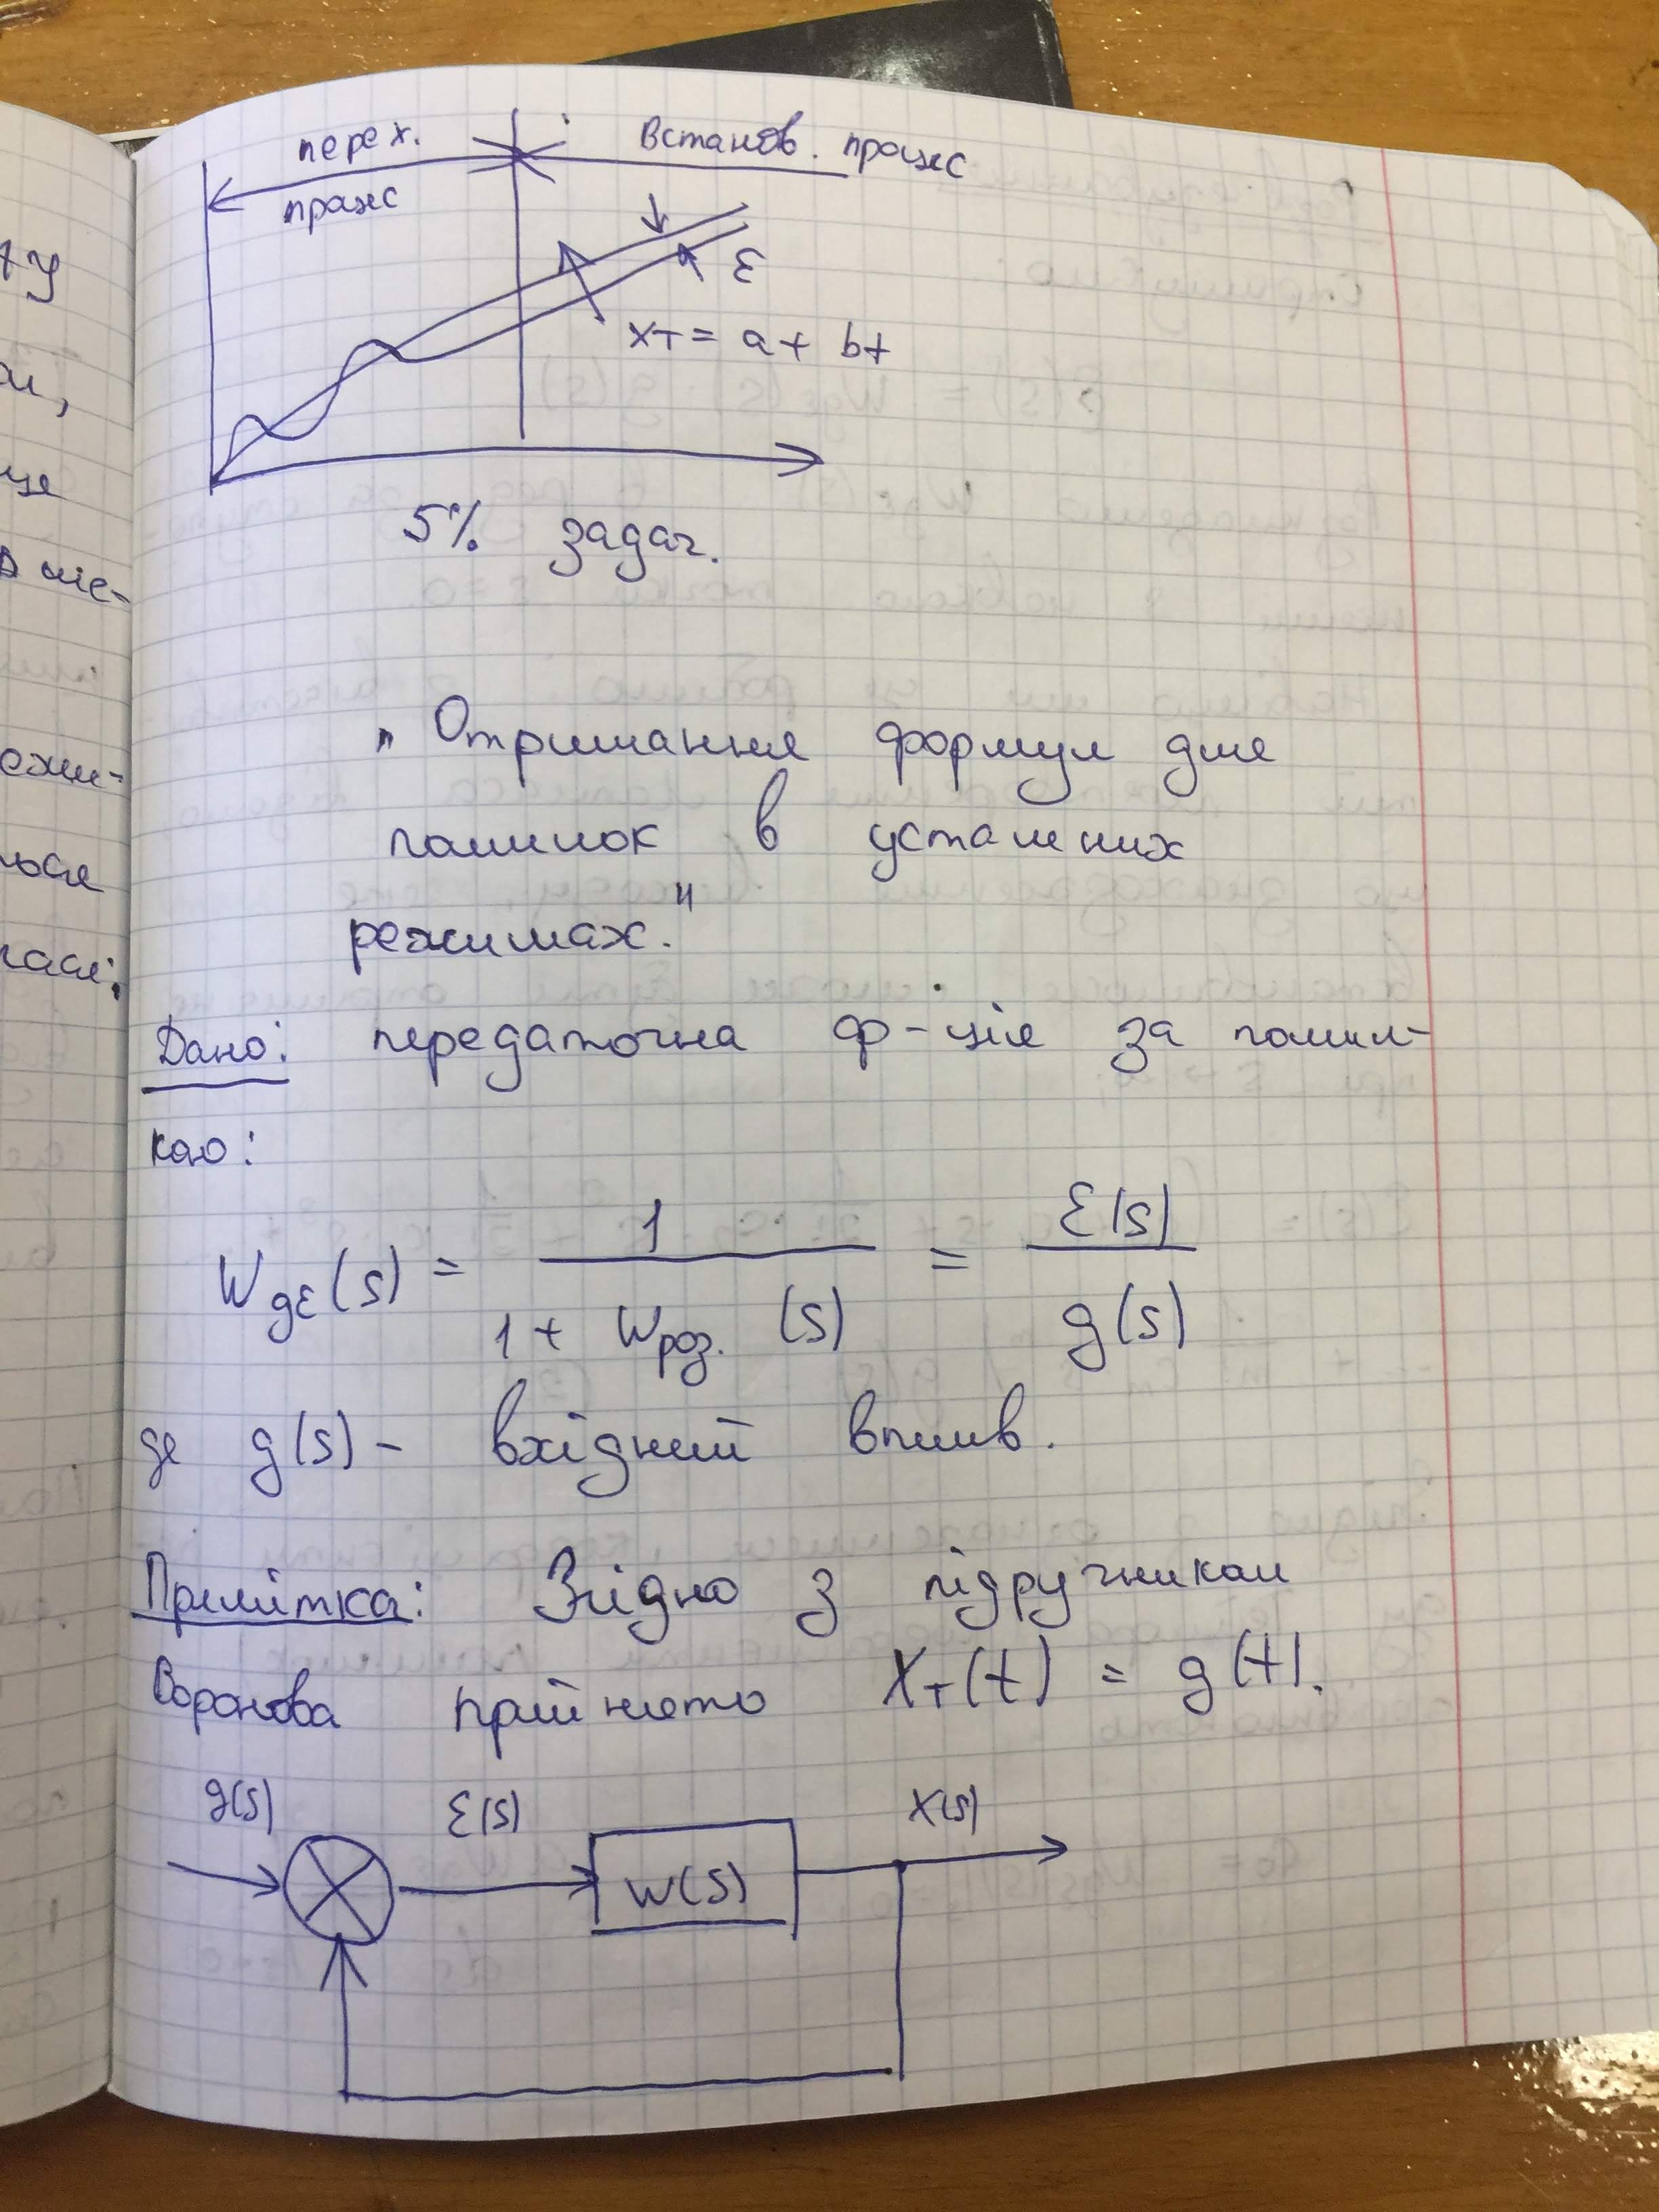 перех. Встанов. процес
процес
ε
xт = a + bt
5% задач.
„Отримання формул для
помилок в усталених
режимах."
Дано: передаточна ф-ція за помил-
кою:
Wgε(s) = 1 / (1 + Wроз. (s)) = ε(s) / g(s)
де g(s) - вхідний вплив.
Примітка: Згідно з підручником
Воронова прийнято Xт(t) = g(t).
g(s) ε(s) X(s)
W(s)